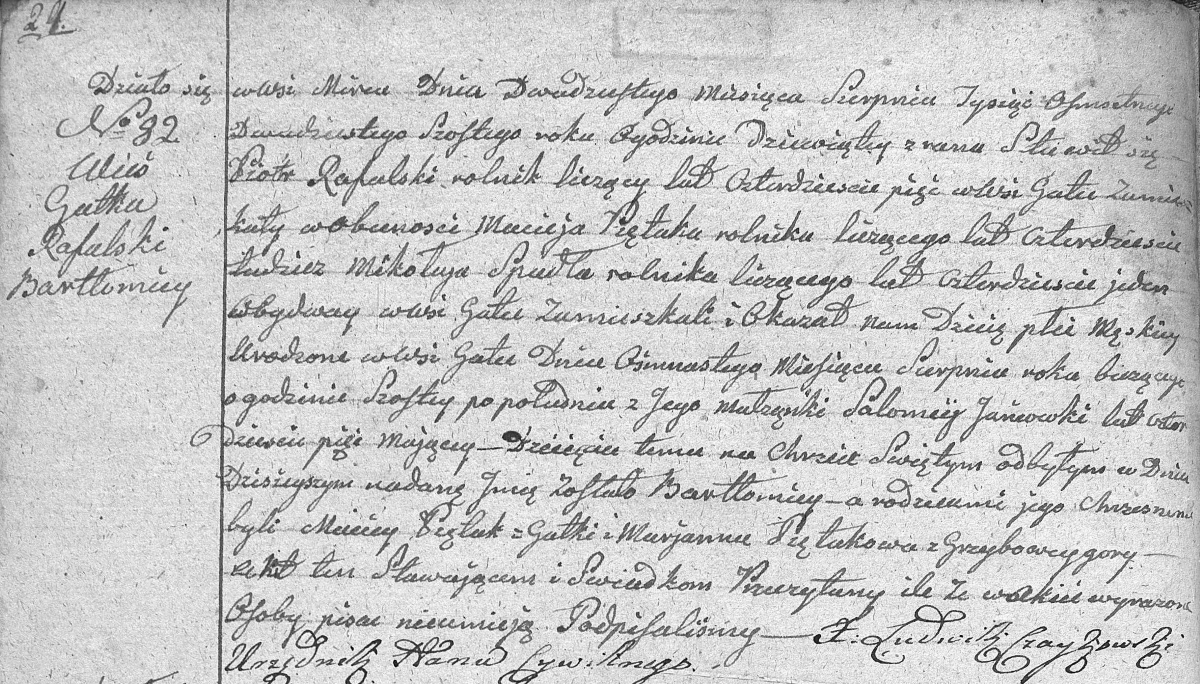 24.
Działo się
No 92
Wieś
Gałka
Rafalski
Bartłomiey
w wsi Mircu Dnia Dwudziestego Miesiąca Sierpnia Tysiąc Osmsetnego
Dwudziestego Szostego roku O godzinie dziewiątey z rana Stawił się
Piotr Rafalski rolnik liczący lat Czterdzieście pięć w wsi Gałce Zamie=
szkały w obecnosci Macieja Piętaka rolnika liczącego lat Czterdzieście
tudzież Mikołaja Spadła rolnika liczącego lat Czterdzieście jeden
obydway w wsi Gałce Zamieszkali i Okazał nam Dziecię płci Męskiey
Urodzone w wsi Gałce Dnia Ośmnastego Miesiąca Sierpnia roku bieżącego
o godzinie Szostey po południu z Jego Małżąnki Salomeij Janowski lat Czter
dzieście pięć Maiącey — Dziecięciu temu na Chrzcie Swiętym odbytym w Dniu
Dzisieyszym nadane Imię Zostało Bartłomiey — a rodzicami jego Chrzesnemi
byli Maciey Piętak z Gałki i Marjanna Piętakowa z Grzybowey gory —
akt ten Stawaiącem i Swiadkom Przeczytany ile że w akcie wyrażone
Osoby pisac nieumieją Podpisalismy — X. Ludwik Czaykowski
Urzędnik Stanu Cywilnego.